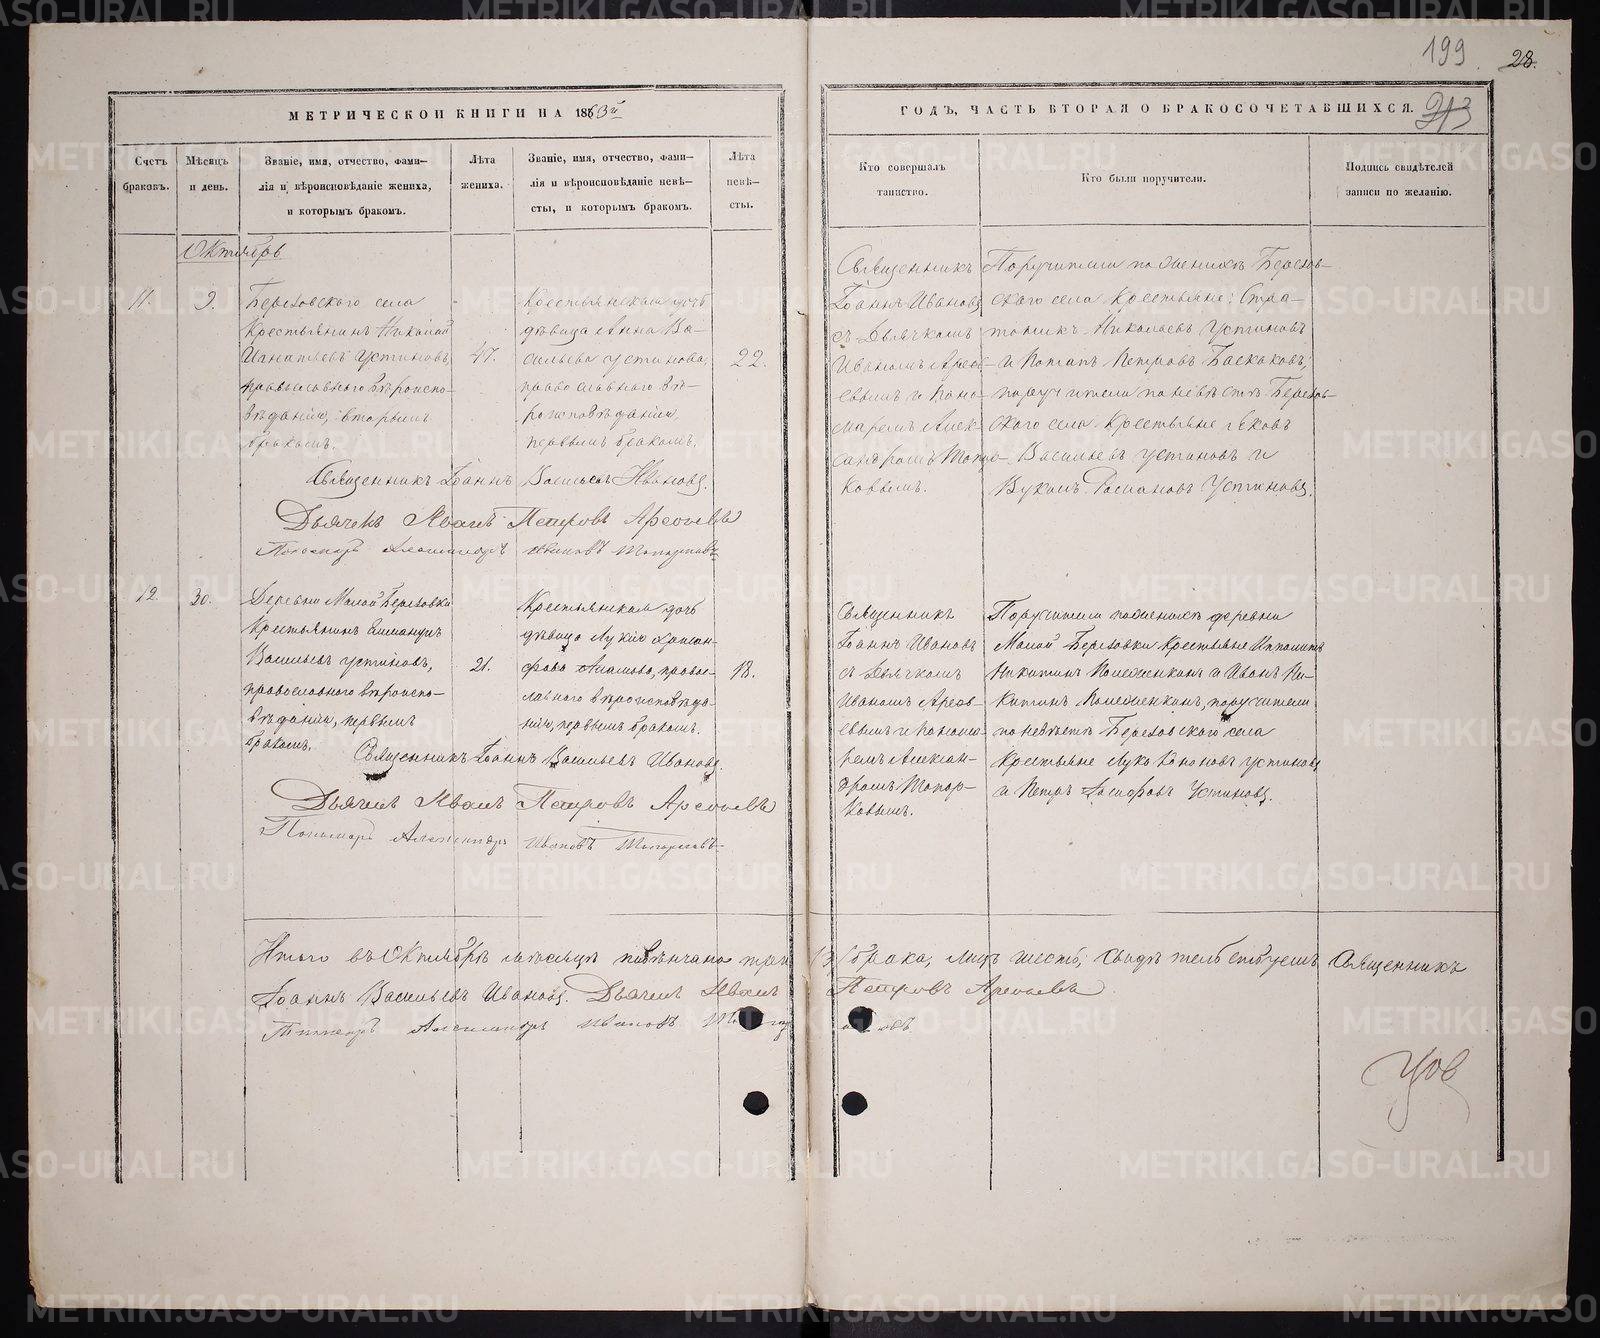 199
28.
МЕТРИЧЕСКОЙ КНИГИ НА 1863й
ГОДЪ, ЧАСТЬ ВТОРАЯ О БРАКОСОЧЕТАВШИХСЯ.
213
Счетъ браковъ.
Мѣсяцъ и день.
Званіе, имя, отчество, фами-
лія и вѣроисповѣданіе жениха,
и которымъ бракомъ.
Лѣта
жениха.
Званіе, имя, отчество, фами-
лія и вѣроисповѣданіе невѣ-
сты, и которымъ бракомъ.
Лѣта
невѣ-
сты.
Кто совершалъ
таинство.
Кто были поручители.
Подпись свидѣтелей
записи по желанію.
Октябрь
11.
9.
Березовскаго села
Крестьянинъ Николай
Игнатьевъ Устиновъ,
православнаго вѣроиспо-
вѣданія, вторымъ
бракомъ.
47.
Крестьянская дочь
дѣвица Анна Ва-
сильева Устинова,
православнаго вѣ-
роисповѣданія
первымъ бракомъ.
22.
Священникъ
Іоаннъ Ивановъ
съ Дьячкомъ
Иваномъ Арефь-
евымъ и Поно-
маремъ Алек-
сандромъ Топор-
ковымъ.
Поручители по женихѣ Березов-
скаго села Крестьяне: Стра-
тоникъ Николаевъ Устиновъ
и Потапъ Петровъ Баскаковъ;
поручители по невѣстѣ Березов-
скаго села Крестьяне Іяковъ
Васильевъ Устиновъ и
Вуколъ Романовъ Устиновъ.
Священникъ Іоаннъ Васильевъ Ивановъ.
Дьячекъ Иванъ Петровъ Арефьевъ
Пономарь Александръ Ивановъ Топорковъ
12.
30.
Деревни Малой Березовки
Крестьянинъ
Васильевъ Устиновъ,
православнаго вѣроиспо-
вѣданія, первымъ
бракомъ.
21.
Крестьянская дочь
дѣвица Лукія
правос-
лавнаго вѣроисповѣда-
нія, первымъ бракомъ.
18.
Священникъ
Іоаннъ Ивановъ
съ Дьячкомъ
Иваномъ Арефь-
евымъ и Понома-
ремъ Алексан-
дромъ Топор-
ковымъ.
Поручители по женихѣ деревни
Малой Березовки Крестьяне Ипполитъ
Никитинъ и Иванъ Ни-
китинъ поручители
по невѣстѣ Березовскаго села
Крестьяне Лука Кононовъ Устиновъ
и Петръ Устиновъ.
Священникъ Іоаннъ Васильевъ Ивановъ.
Дьячекъ Иванъ Петровъ Арефьевъ
Пономарь Александръ Ивановъ Топорковъ
Итого въ Октябрѣ мѣсяцѣ повѣнчано три (3) брака, лицъ шесть, свидѣтельствуемъ Священникъ
Іоаннъ Васильевъ Ивановъ. Дьячекъ Иванъ Петровъ Арефьевъ
Пономарь Александръ Ивановъ